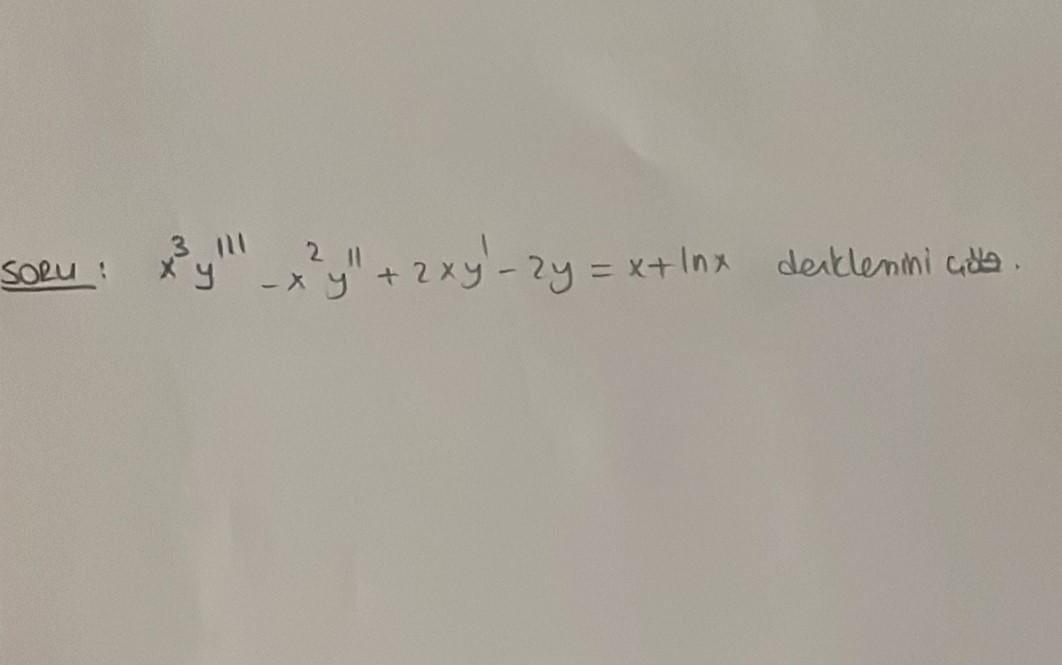 SORU : x³y''' - x²y'' + 2xy' - 2y = x + lnx denklemini